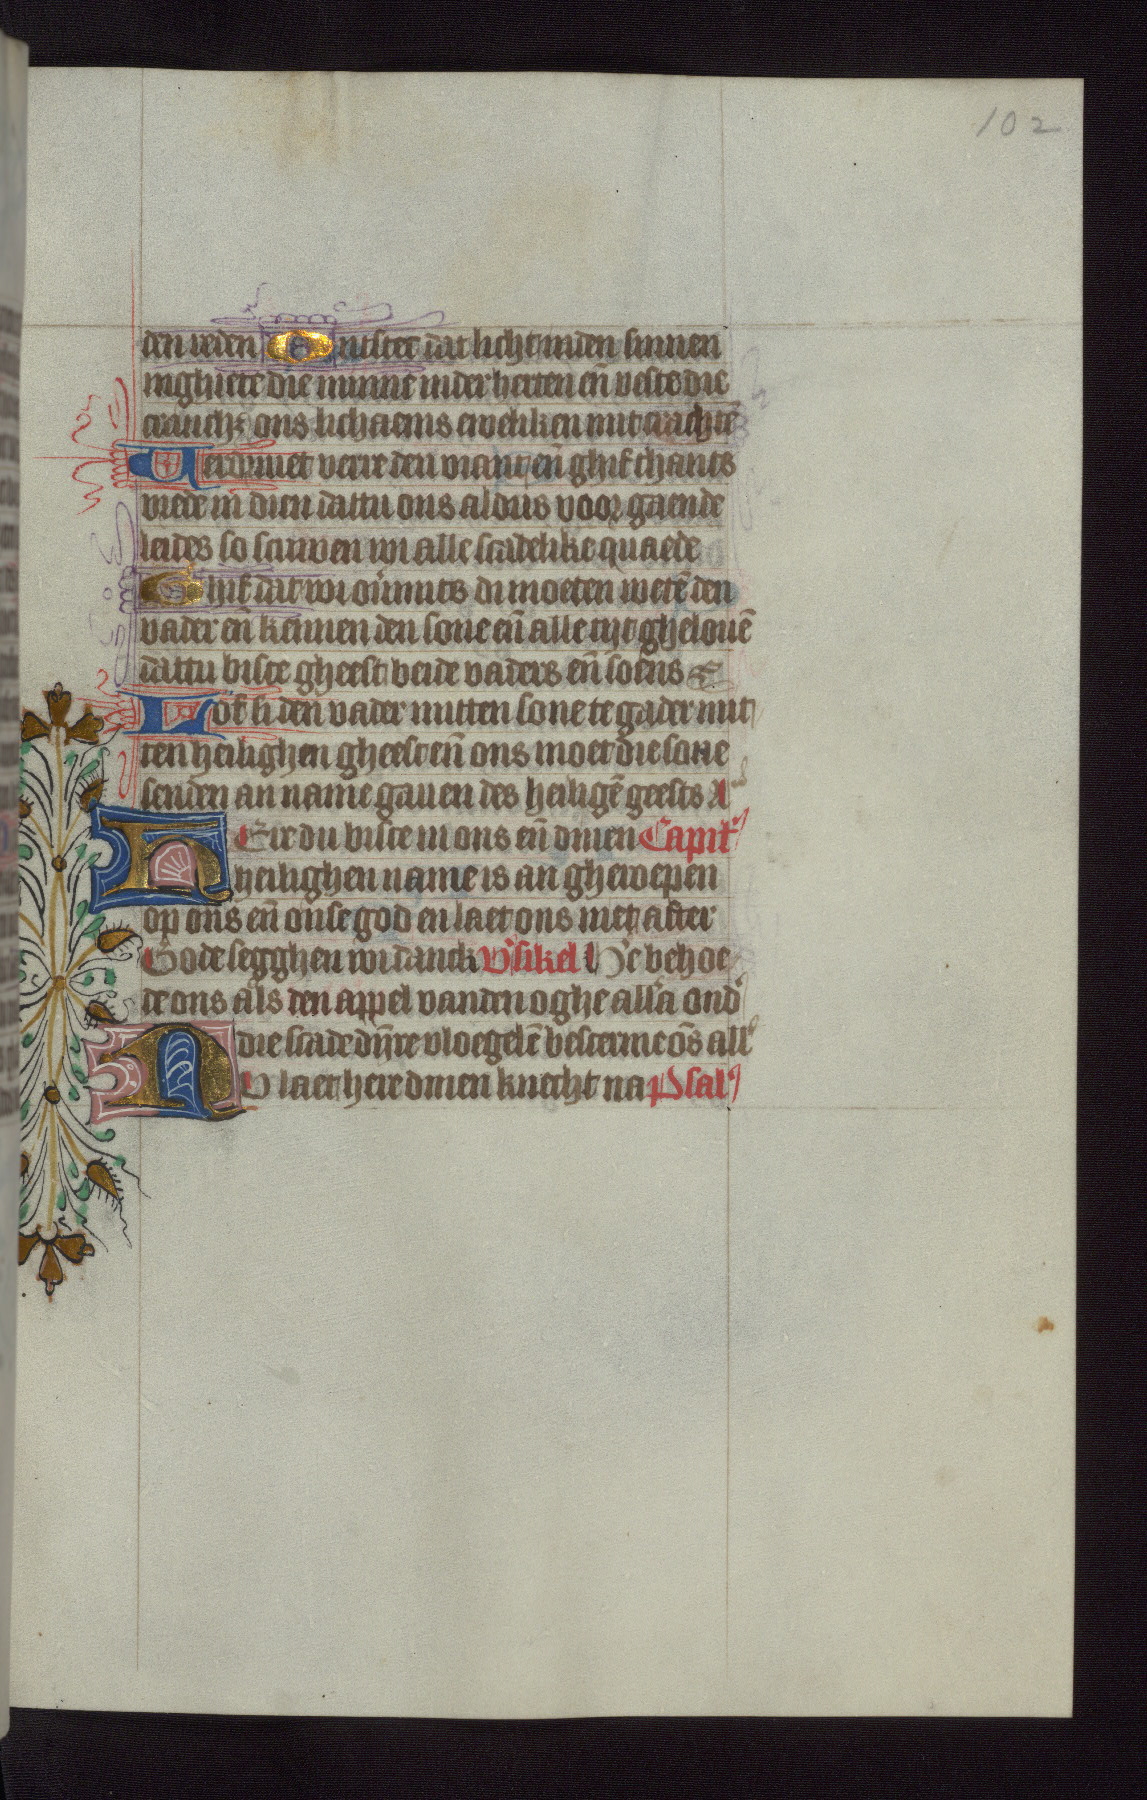 102
den reden Ontstect dat licht inden sinnen
inghiete die minne inder herten en̄ veste die
cranchz ons lichaems eweliken mit crachtē
Verdriuet verre den viant en̄ ghif thants
vrede in dien dattu ons aldus voor gaende
leides so scuwen wi alle scadelike quaede
Ghif dat wi ouermits di moeten wetē den
vader en̄ kennen den sone en̄ alle tijt ghelouē
dattu biste gheest beide vaders en̄ soens
Lof si den vader mitten sone te gader mit
ten heilighen gheest en̄ ons moet die sone
senden an name gauen des heiligē geests A
HEre du biste in ons en̄ dinen Capit'
heilighen name is an gheroepen
op ons en̄ onse god en laet ons niet after
Gode segghen wi danck V'sikel He behoe
de ons als den appel vanden oghe all'a ond'
die scade dijnre vloegelē bescerme ōs all'
NU laet here dinen knecht na Psal'